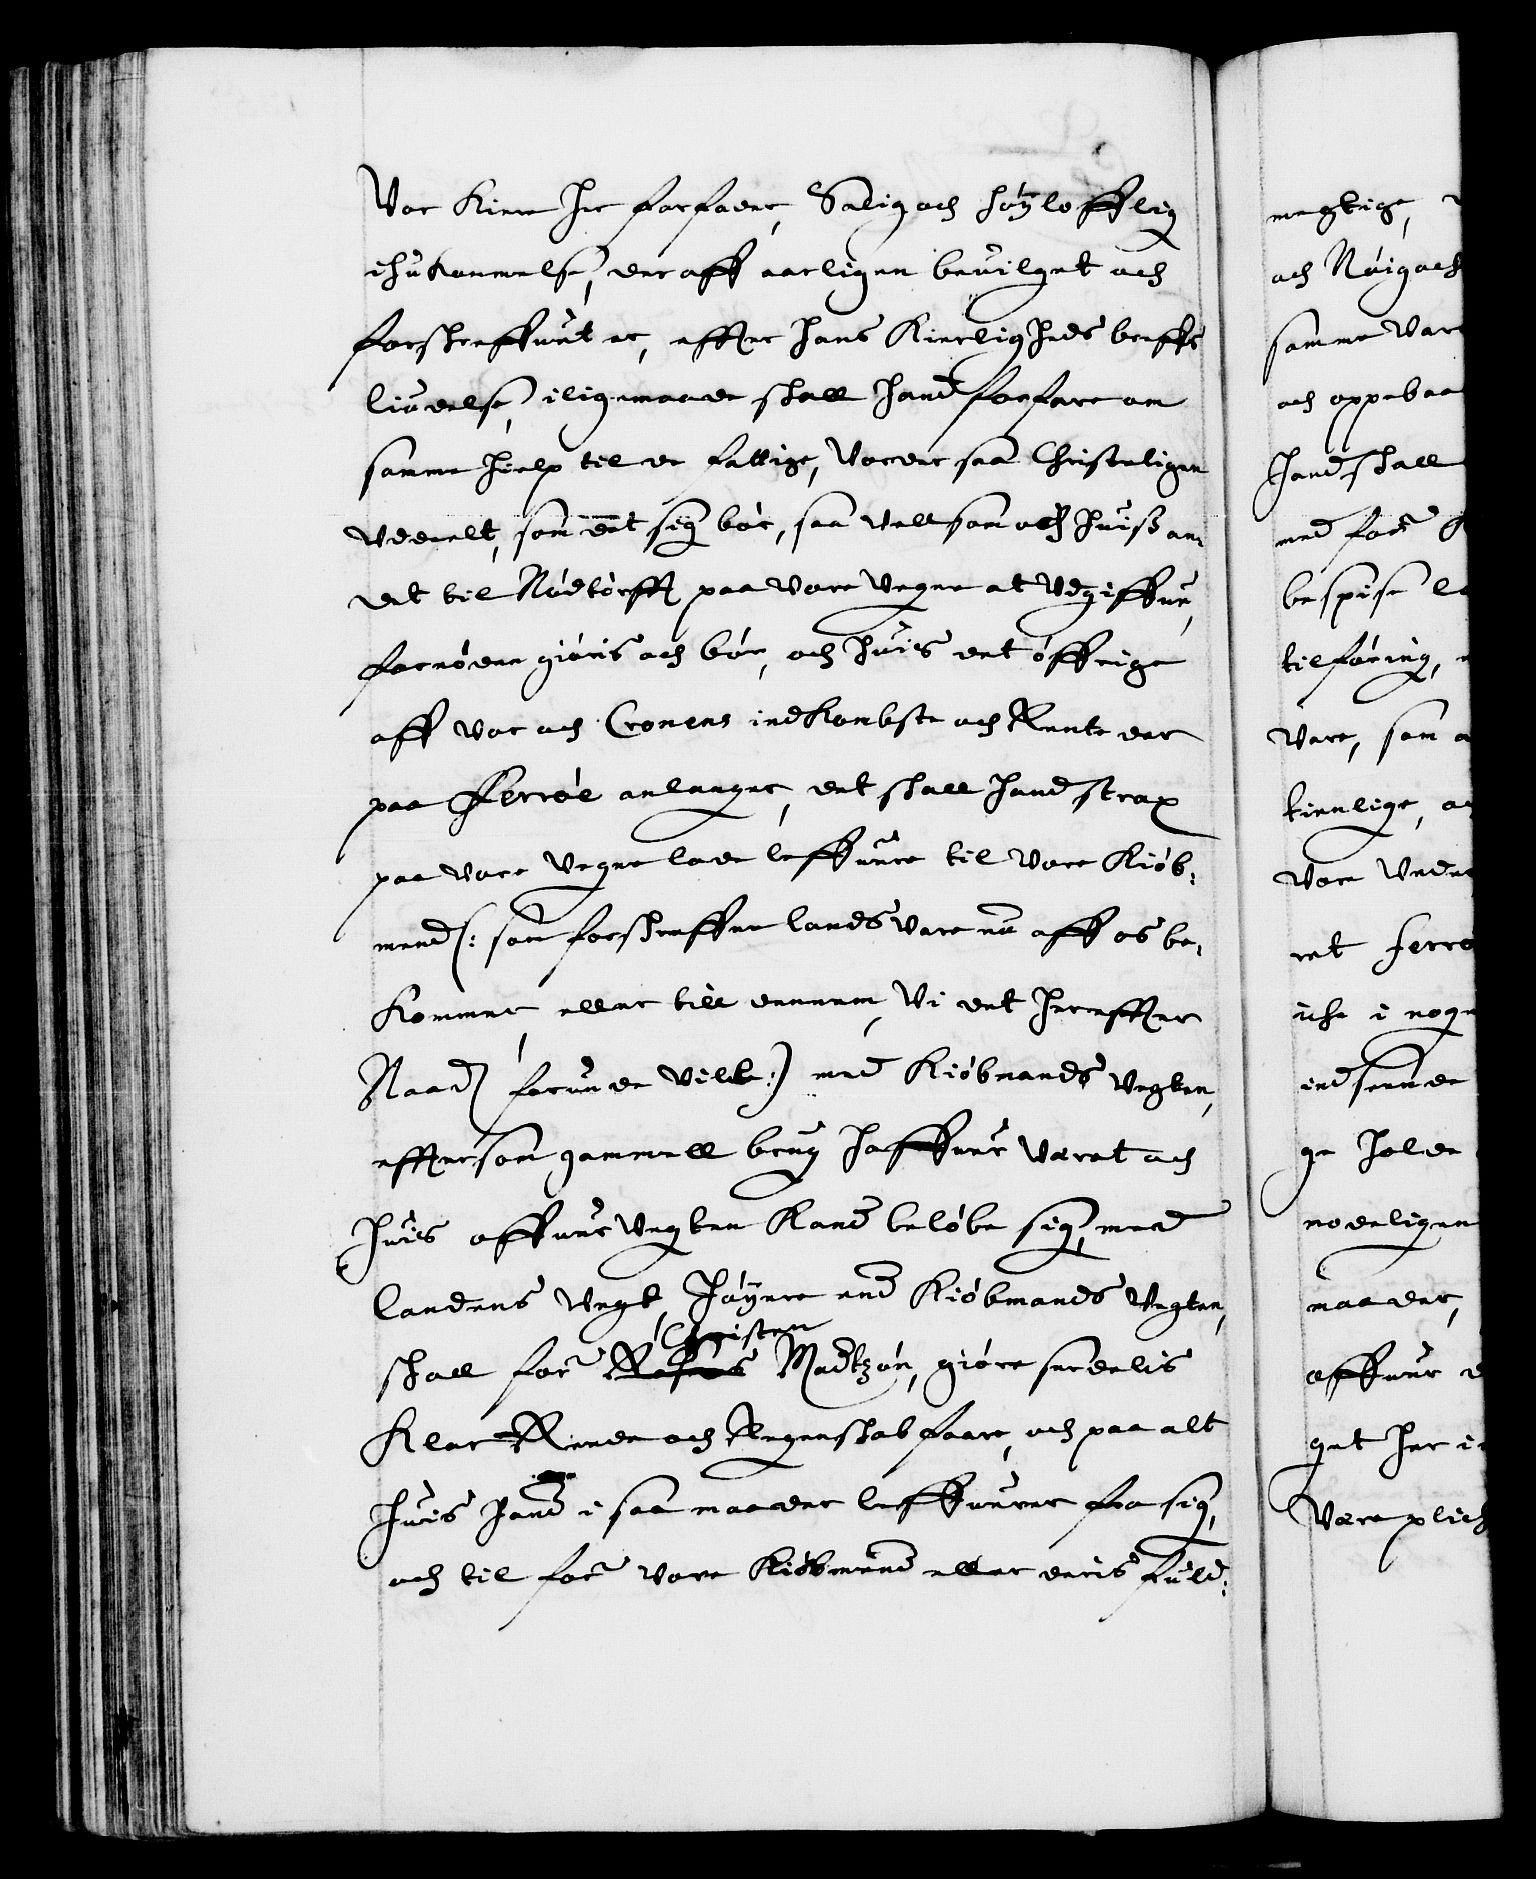 Vor Kiere Her forfader, Salig och høylofflig
ihukommelse, der aff aarligen beuilget och
forschreffuet er, effter Hans Kierlig Heds breffs
liudelse, iligemaade schall Hand forfare om
samme Hielp til de fattige, Vorder saa Christeligen
Vddeelt, som det sig bør, saa vell som och Huiß an„
det til Nødtørfft paa vore Vegne at Vdgiffue,
fornøden giøris och bør, och Huis det øffrige
aff vor och Cronens indKombste och Rente der
paa Ferröe anlanger, det schall Hand strax
paa vore Vegne lade leffuere til vore Kiøb„
mend (: som forschreffne lands Vare nu aff os be„
Kommer, eller till dennem, Vi det Hereffter
Naad: forunde Ville :) med Kiøbmands Vegten,
effter som gammell brug Haffuer Været och
Huis offuer Vegten Kand beløbe sig, med
landens Vegt, Høyere end Kiøbmands Vegten,
Christen
schall for: Madtzøn, giøre serdelis
Klar Rede och Regenschab faare, och paa alt
Huis Hand i saa maader leffuerer fra sig,
och til for: vore Kiøbmend eller deris fuld„
megtige,
och Nøigach
samme Vare
och oppebaa
Hand schall
med for:
bespise
tilføring,
Vare, som
tienlige,
Vore Vnder
ret ferrö
iche i nog
indsende
ge Holde
nodeligen
maader,
offuer
get Her
Være plich